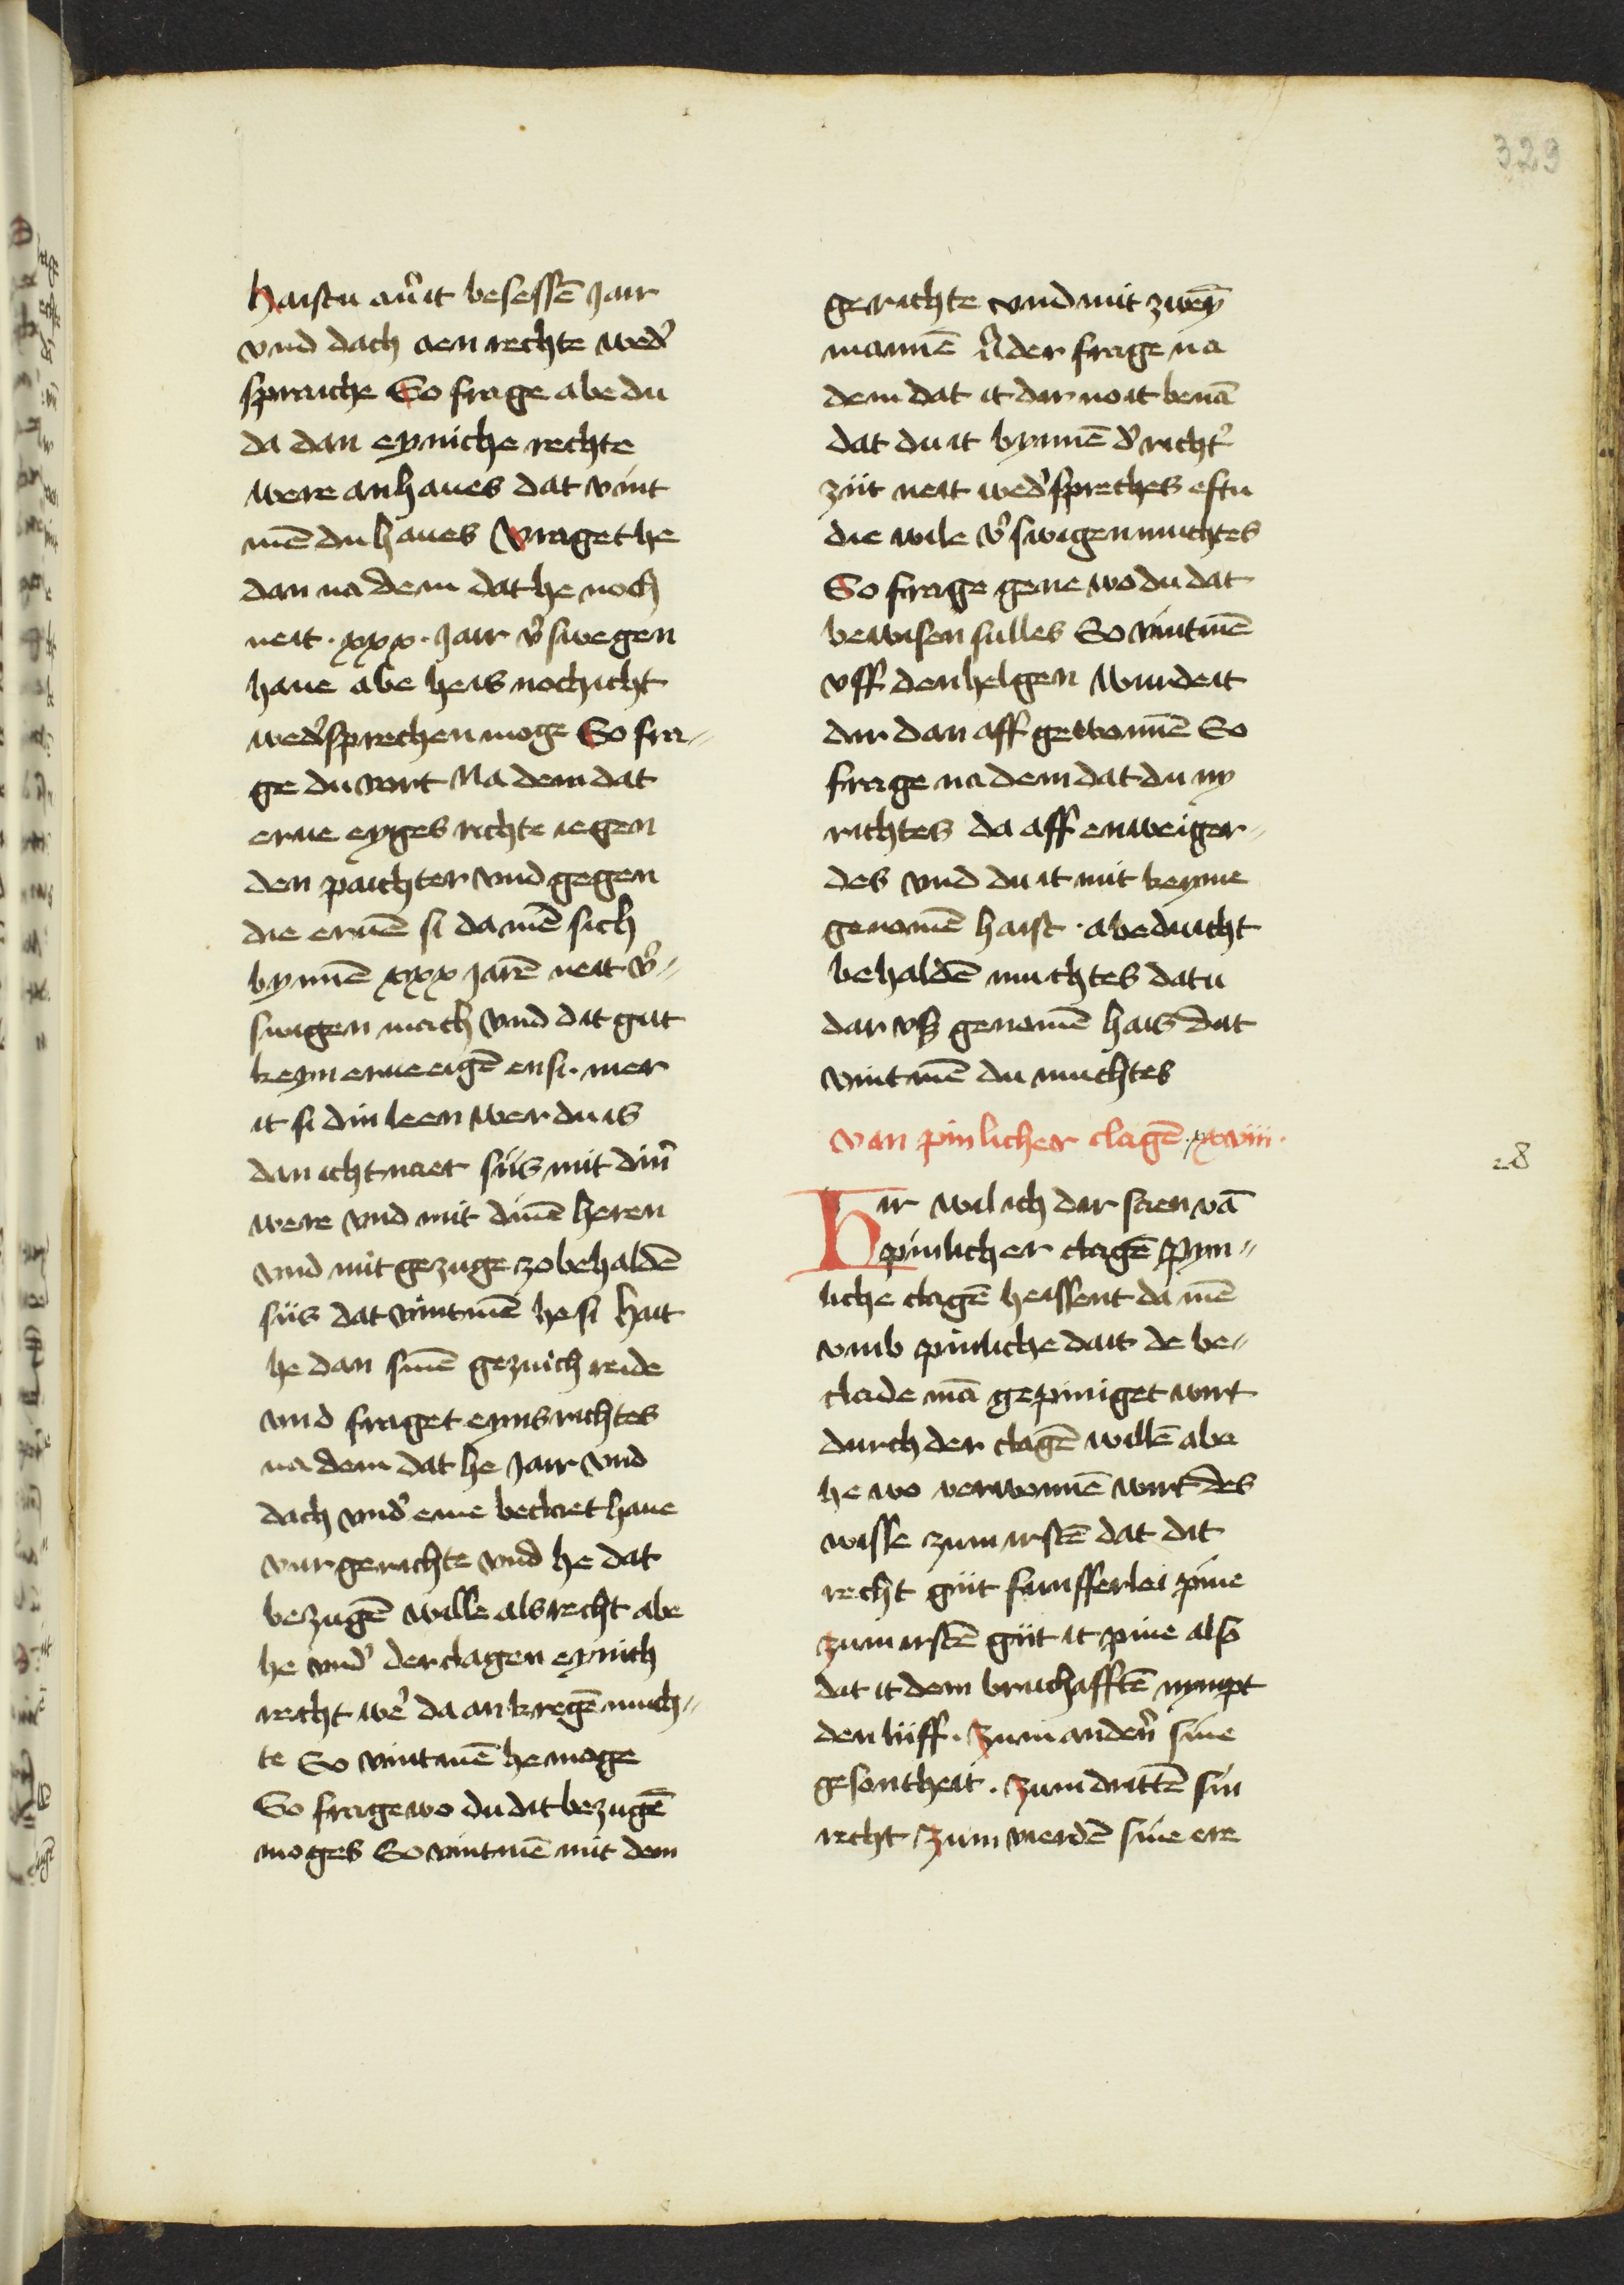 329
haistu auͤit besessē Jair
vnd dach aen rechte wed'
spraiche So frage abe du
da dan eyniche rechte
were anhaues dat vint
mē du haues Vraget he
dan na dem dat he noch
neit · xxx · Jair v'swegen
haue abe he is noch icht
wed'sprechen moge So fra-
ge du vort Na dem dat
erue eyges rechte iegen
den paichter vnd gegen
die eruē si da mē sich
bynnē xxx Jarē neit v'-
swigen mach vnd dit gut
keyn erue eigē en si. mer
it si din leen wer du is
dan icht naer siis mit din'
were vnd mit dinē heren
vnd mit gezuge zo behaldē
siis dat vint mē he si hait
he dan sinē gezuich reide
vnd fraget eyns richtes
na dem dat he Jair vnd
dach vnd' eme beclaet haue
vur gerichte vnd he dat
bezugē wille als recht abe
he vnd' der clagen eynich
recht we' da an kregē much-
te So vint mē he moge
So frage wo du dit bezugē
moges So vint mē mit dem
gerichte vnd mit zweȳ
mannē Ader frage na
dem dat it dir noit benā
dat du it bynnē d' richt'
ziit neit wed'spreches eftu
die wile v'swigen muchtes
So frage gene wo du dat
bewisen sulles So vint mē
vff den helgen Wurde it
dir dan aff gewonnē So
frage na dem dat du ny
richtes da aff en weiger-
des vnd du it mit keyme
genomē haist · abe du icht
behaldē muchtes datu
dar vß genomē hais dat
vint mē du muchtes
Van pinlicher clagē · xxviii ·
28
Hir wil ich dir saen vā
pinlicher clagē Pyn-
liche clagē heissent da mē
vmb pinliche dait de be-
clade mā gepiniget wirt
durch der clagē willē abe
he wo verwonnē wirt des
wisse zum irstē dat dit
recht giit funfferlei pine
zum irstē giit it pine also
dat it dem bruchafftē nympt
den liiff. Zum ander̄ sine
gesontheit. Zum drittē sin
recht Zum vierdē sine ere